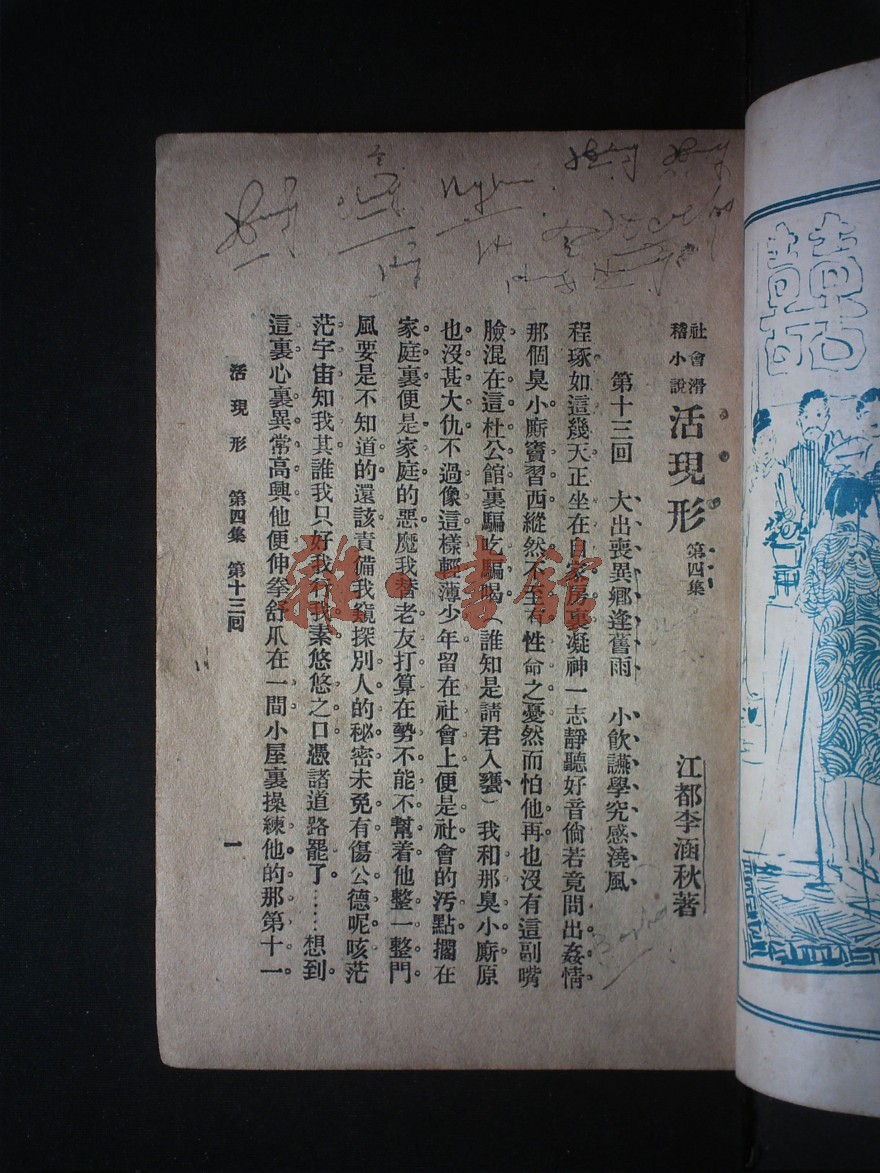 社會滑稽小說 活現形 第四集
江都李涵秋著
第十三回 大出喪異鄉逢舊雨 小飲讌學究感澆風
程琢如這幾天正坐在自家房裏凝神一志靜聽好音倘若竟問出姦情
那個臭小廝竇習西縱然不至有性命之憂然而怕他再也沒有這副嘴
臉混在這杜公館裏騙吃騙喝（誰知是請君入甕）我和那臭小廝原
也沒甚大仇不過像這樣輕薄少年留在社會上便是社會的污點擱在
家庭裏便是家庭的惡魔我替老友打算在勢不能不幫着他整一整門
風要是不知道的還該責備我窺探別人的秘密未免有傷公德呢咳茫
茫宇宙知我其誰我只好我行我素悠悠之口憑諸道路罷了……想到
這裏心裏異常高興他便伸拳舒爪在一間小屋裏操練他的那第十一
活現形 第四集 第十三回 一
雜·書館
囍